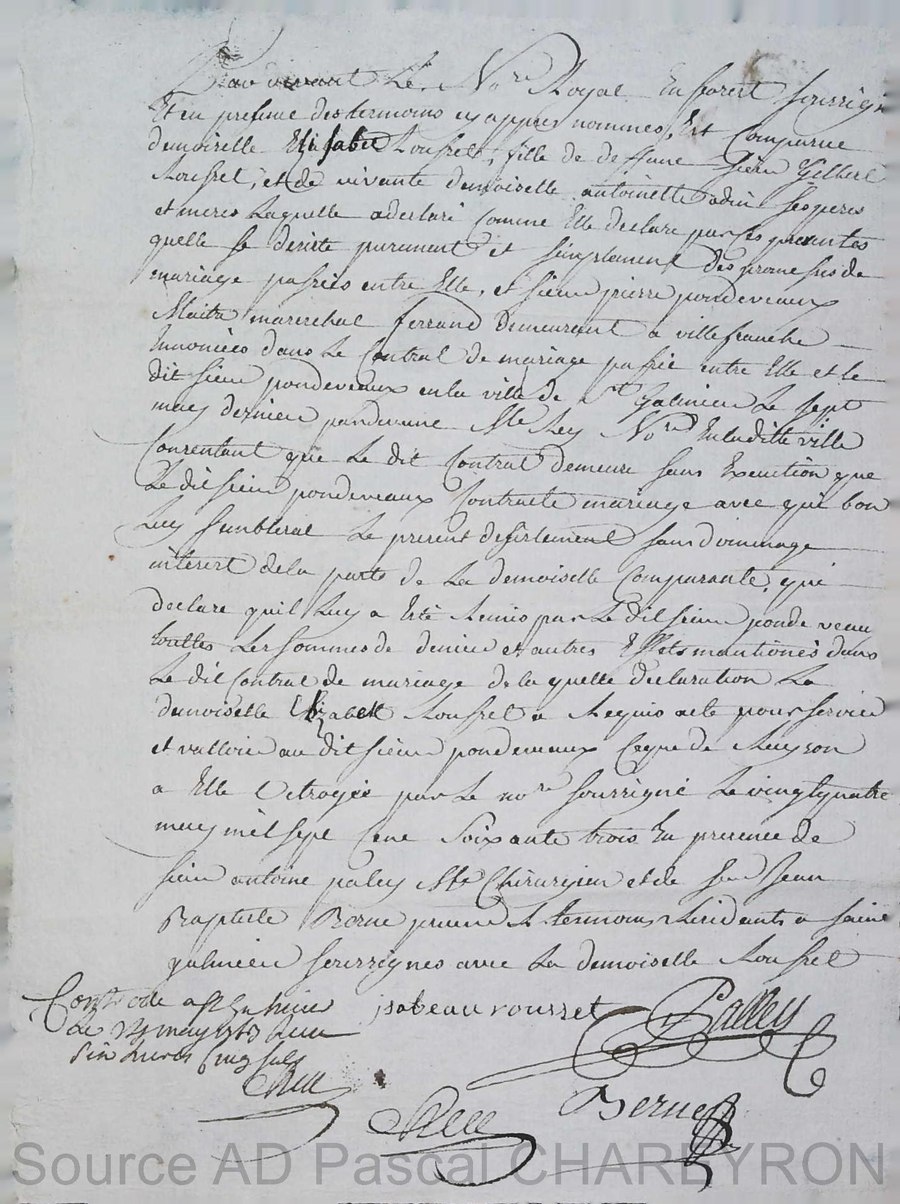 Par devant Le Nore Royal En forest soussigné
Et en presence des termoins cy appres nommés, Est Comparue
demoiselle Elisabet Rousset, fille de deffunt sieur Gilbert
Rousset, et de vivante demoiselle antoinette adin ses peres
et meres Laquelle a declaré Comme Elle declare par ces presentes
quelle se desiste purement et simplement des promesses de
mariage passées entre Elle, et sieur pierre pondeveaux
Maitre marechal ferrand demeurant a villefranche
Ennoncées dans Le Contrat de mariage passée entre Elle et le
dit sieur pondeveaux en la ville de St Galmier Le sept
may dernier pardevant Me Ley Nore En laditte ville
Consentant que Le dit Contrat demeure sans Execution que
Le dit sieur pondeveaux Contracte mariage avec qui bon
Luy semblerat Le present desistement sans dommage
interert de la parte de La demoiselle Comparante, qui
declare quil Luy a Esté Remis par Le dit sieur pondeveau
touttes Les sommes de denier et autres Effets mantionés dans
Le dit Contrat de mariage de la quelle declaration La
demoiselle Elizabett Rousset a Requis acte pour servir
et valloir au dit sieur pondeveaux Ce que de Raison
a Elle Octroyée par Le nore soussigné Le vingt quatre
may mil sept Cent Soixante trois En presence de
sieur antoine paley Me Chirurgien et de sieur Jean
Baptiste Berne termoins Residants a saint
galmier soussignés avec La demoiselle Rousset
Controlé a St Galmier
Le may 1763 Reçu
six Livres Cinq sols
isabeau rousset
Palley
Berne
Source AD Pascal CHARBYRON